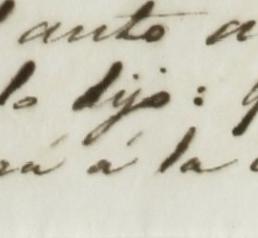 anto a
lo dijo: q
rá á la